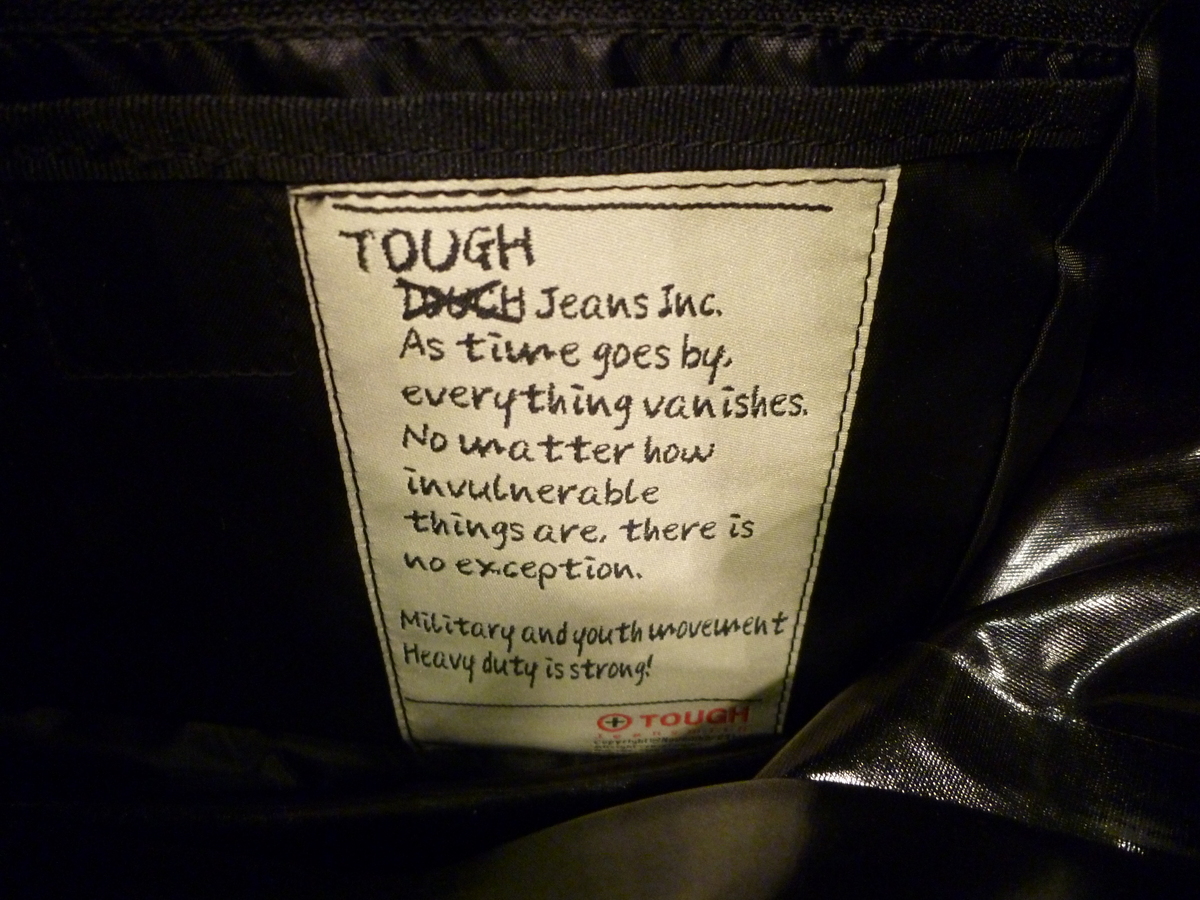 TOUGH
TOUCH Jeans Inc.
As time goes by,
everything vanishes.
No matter how
invulnerable
things are, there is
no exception.
Military and youth movement
Heavy duty is strong!
TOUGH